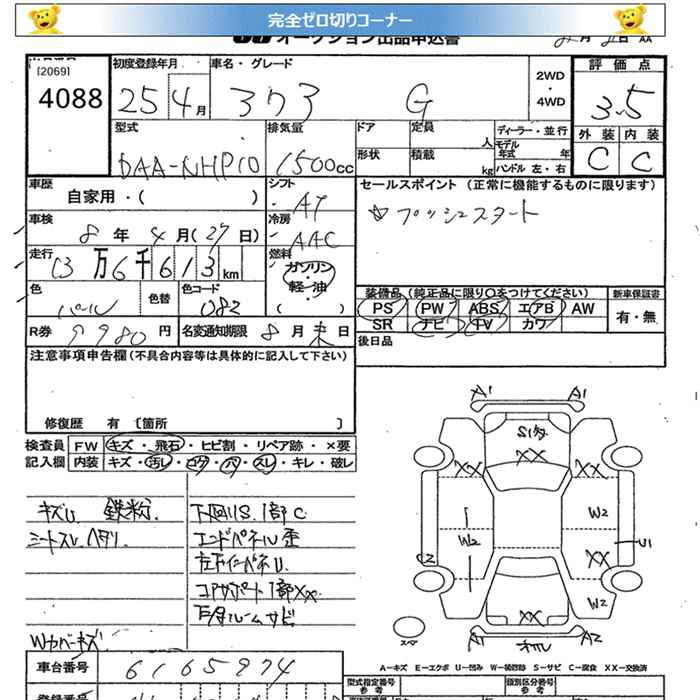 完全ゼロ切りコーナー
オークション出品申込書
AA
[2069]
4088
初度登録年月
25年4月
車名・グレード
アクア G
2WD
・
4WD
評価点
3.5
外装 内装
C C
型式
DAA-NHP10
排気量
1500cc
ドア
定員
人
形状
積載
kg
ディーラー・並行
モデル年式 年
ハンドル 左・右
車歴
自家用・( )
シフト
AT
セールスポイント (正常に機能するものに限ります)
☆プッシュスタート
車検
8年4月(27日)
冷房
AAC
走行
13万6千613km
燃料
ガソリン・
軽・油
( )
色
パール
色替
色コード
082
装備品 (純正品に限り○をつけてください)
新車保証書
PS PW ABS エアB AW
有・無
SR ナビ TV カワ
R券 9980円
名変通知期限 8月末日
後日品
注意事項申告欄(不具合内容等は具体的に記入して下さい)
修復歴 有 〔箇所 〕
検査員 FW キズ・飛石・ヒビ割・リペア跡・×要
記入欄 内装 キズ・汚レ・コゲ・穴・スレ・キレ・破レ
キズU 鉄粉
シートスレ、ヘタリ
Wカバーキズ
下回りS 1部C
エンドパネル歪
左下インパネU
コアサポート1部XX
下舟ルームサビ
車台番号 6165974
A1 A1
S1多
XX
XX XX
W2 W2
XX
U1
C2
W2
XX
A1 A2
スペア
A−キズ E−エクボ U−凹み W−補修跡 S−サビ C−腐食 XX−交換済
型式指定番号
参考
類別区分番号
参考
登録番号